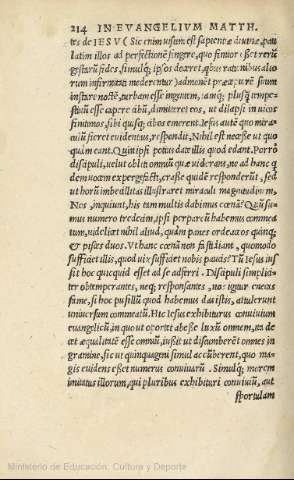 214 IN EVANGELIVM MATTH.
tes de IESV (Sic enim usum est sapientiæ diuinæ, pau
latim illos ad perfectionē fingere, quo firmior esset rerū
gestarū fides, simulq; ipsos doceret, quibus rationibus alio
rum infirmitati mederentur) admonēt præceptorē suum
instare noctē, turbam esse ingentem, iamq; plusq̃ tempe
stiuū esse capere cibū, dimitteret eos, ut dilapsi in uicos
finitimos, sibi quisq; cibos emerent. Iesus autē quo mira
culū fieret euidentius, respondit, Nihil est necesse ut quo
quam eant. Quin ipsi potius date illis quod edant. Porrò
discipuli, uelut obliti omniū quæ uiderant, ne ad hanc q̃
dem uocem expergefacti, crasse quidē responderūt, sed
ut horū imbecillitas illustraret miraculi magnitudinem,
Nos, inquiunt, his tam multis dabimus cœnā? Cūsu
mus numero tredecim, ipsi perparcū habemus commea
tum, uidelicet nihil aliud, quàm panes ordeaceos quinq;
& pisces duos. Vt hanc cœnā non fastidiant, quomodo
sufficiet illis, quod uix sufficiet nobis paucis? Tū Iesus ius
sit hoc quicquid esset ad se adferri. Discipuli simplici
ter obtemperantes, neq; responsantes, nos igitur enecas
fame, si hoc pusillū quod habemus das istis, attulerunt
uniuersum commeatū. Hic Iesus exhibiturus conuiuium
euangelicū, in quo ut oportet abesse luxū omnem, ita de
cet æqualitatē esse omniū, iußit ut discumberēt omnes in
gramine, sic ut quinquageni simul accūberent, quo ma
gis euidens esset numerus conuiuarū. Simulq; morem
imitatus illorum, qui pluribus exhibituri conuiuiū, aut
sportulam
Ministerio de Educación, Cultura y Deporte